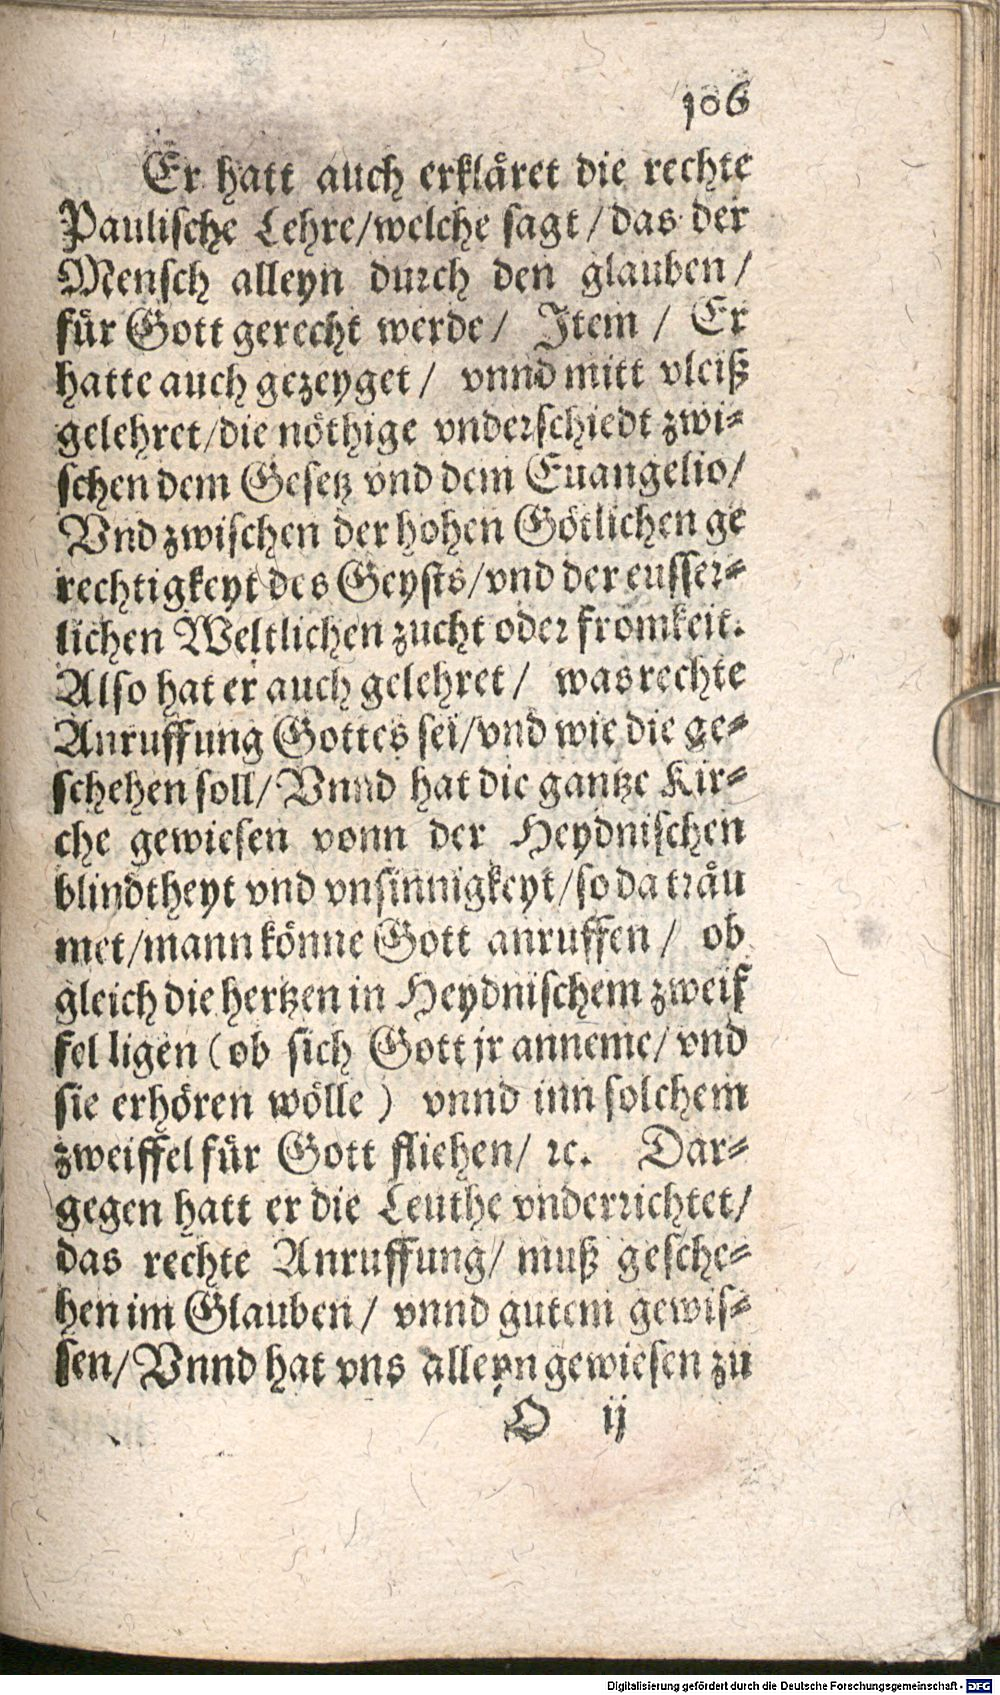 106
Er hatt auch erkläret die rechte
Paulische Lehre/welche sagt/das der
Mensch alleyn durch den glauben/
für Gott gerecht werde/ Item / Er
hatte auch gezeyget / vnnd mitt vleiß
gelehret/die nöthige vnderschiedt zwi⸗
schen dem Gesetz vnd dem Euangelio/
Vnd zwischen der hohen Götlichen ge
rechtigkeyt des Geysts/vnd der eusser⸗
lichen Weltlichen zucht oder fromkeit.
Also hat er auch gelehret / was rechte
Anruffung Gottes sei/vnd wie die ge⸗
schehen soll/ Vnnd hat die gantze Kir⸗
che gewiesen vonn der Heydnischen
blindtheyt vnd vnsinnigkeyt/so da träu
met/mann könne Gott anruffen / ob
gleich die hertzen in Heydnischem zweif
fel ligen (ob sich Gott jr anneme/ vnd
sie erhören wölle ) vnnd inn solchem
zweiffel für Gott fliehen/ ꝛc. Dar⸗
gegen hatt er die Leuthe vnderrichtet/
das rechte Anruffung/ muß gesche⸗
hen im Glauben / vnnd gutem gewis⸗
sen/ Vnnd hat vns alleyn gewiesen zu
O ij
Digitalisierung gefördert durch die Deutsche Forschungsgemeinschaft - DFG